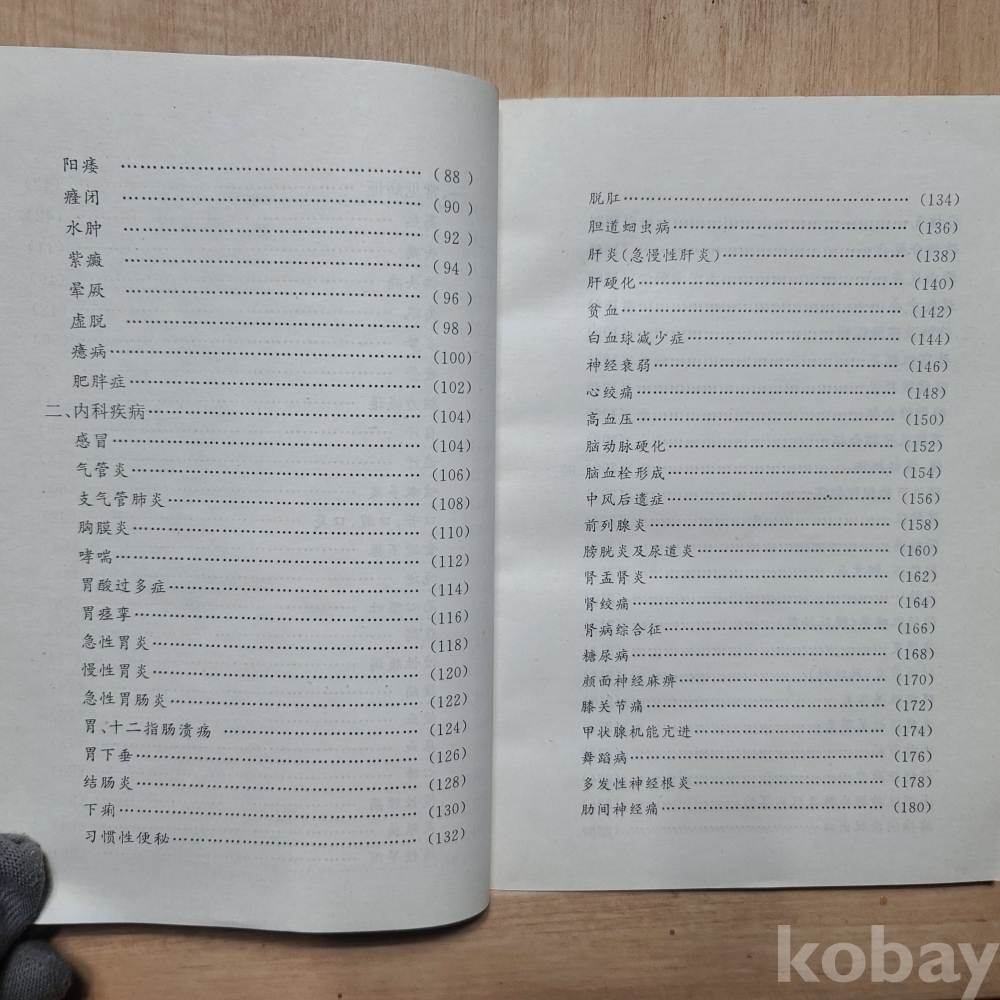 阳痿 ……………………………………… (88)
癃闭 ……………………………………… (90)
水肿 ……………………………………… (92)
紫癜 ……………………………………… (94)
晕厥 ……………………………………… (96)
虚脱 ……………………………………… (98)
癔病……………………………………… (100)
肥胖症…………………………………… (102)
二、内科疾病…………………………… (104)
感冒……………………………………… (104)
气管炎…………………………………… (106)
支气管肺炎……………………………… (108)
胸膜炎…………………………………… (110)
哮喘……………………………………… (112)
胃酸过多症……………………………… (114)
胃痉挛…………………………………… (116)
急性胃炎………………………………… (118)
慢性胃炎………………………………… (120)
急性胃肠炎……………………………… (122)
胃、十二指肠溃疡 ……………………… (124)
胃下垂…………………………………… (126)
结肠炎…………………………………… (128)
下痢……………………………………… (130)
习惯性便秘……………………………… (132)
脱肛……………………………………… (134)
胆道蛔虫病……………………………… (136)
肝炎(急慢性肝炎)……………………… (138)
肝硬化…………………………………… (140)
贫血……………………………………… (142)
白血球减少症…………………………… (144)
神经衰弱………………………………… (146)
心绞痛…………………………………… (148)
高血压…………………………………… (150)
脑动脉硬化……………………………… (152)
脑血栓形成……………………………… (154)
中风后遗症……………………………… (156)
前列腺炎………………………………… (158)
膀胱炎及尿道炎………………………… (160)
肾盂肾炎………………………………… (162)
肾绞痛…………………………………… (164)
肾病综合征……………………………… (166)
糖尿病…………………………………… (168)
颜面神经麻痹…………………………… (170)
膝关节痛………………………………… (172)
甲状腺机能亢进………………………… (174)
舞蹈病…………………………………… (176)
多发性神经根炎………………………… (178)
肋间神经痛……………………………… (180)
kobay